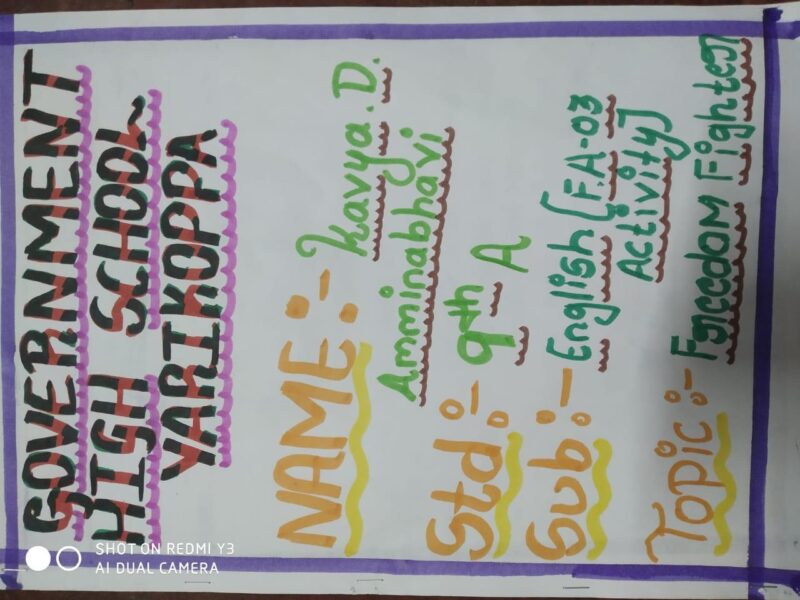 GOVERNMENT
HIGH SCHOOL
YARIKOPPA
NAME:- Kavya.D.
Amminabhavi
Std:- 9th A
Sub:- English [F.A-03
Activity]
Topic:- Freedom Fighter
SHOT ON REDMI Y3
AI DUAL CAMERA